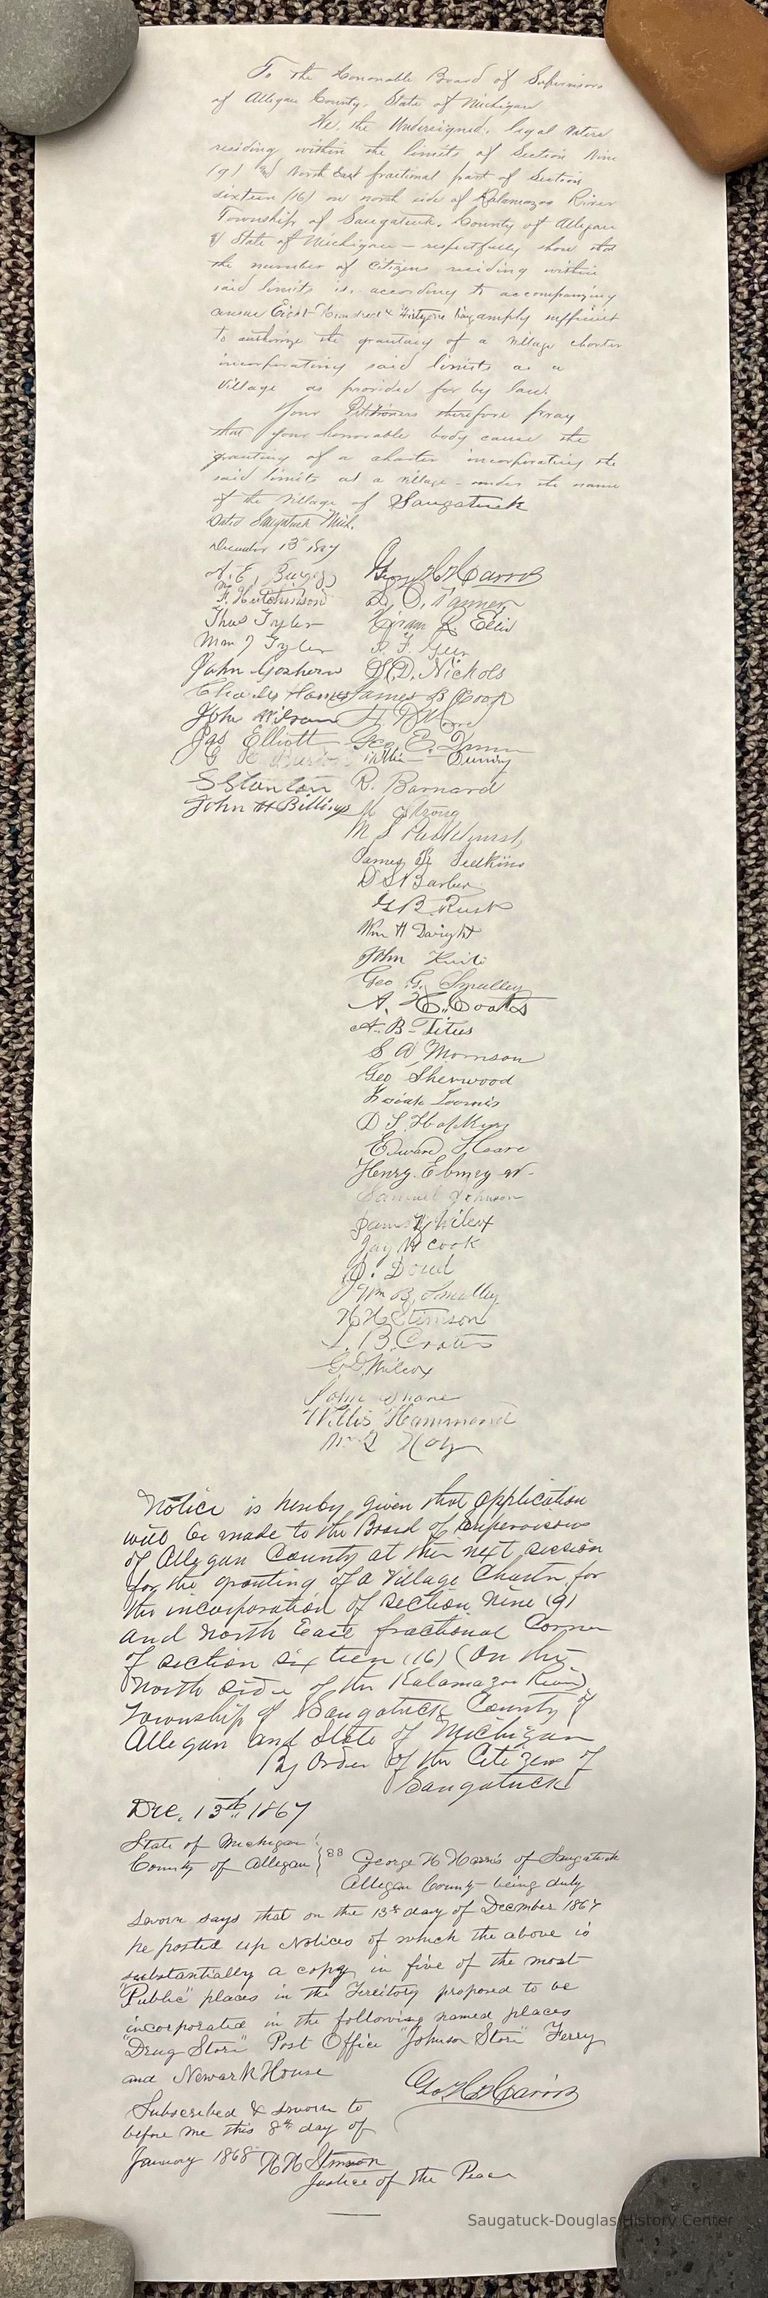 To the Honorable Board of Supervisors
of Allegan County, State of Michigan
We, the Undersigned, legal voters
residing within the limits of Section Nine
(9) and North East fractional part of Section
sixteen (16) on north side of Kalamazoo River
Township of Saugatuck, County of Allegan
& State of Michigan - respectfully show that
the number of citizens residing within
said limits is, according to accompanying
census Eight Hundred & amply sufficient
to authorize the granting of a village charter
incorporating said limits as a
Village as provided for by law.
Your Petitioners therefore pray
that your honorable body cause the
granting of a charter incorporating the
said limits as a village - under the name
of the Village of Saugatuck
Dated Saugatuck Mich.
December 13th 1867
A. E. Geo H Harris
F. Hutchinson
Thos Tyler Hiram R Ellis
Wm J Tyler
John Goshorn S. D. Nichols
Charles James B Coop
John Wilson H D Moore
Jas Elliott Geo E. Dunn
G
S Stanton R. Barnard
John H Billings M Strong
M S Parkhurst
James Judkins
D S Barber
G B Rusk
Wm H Dwight
John
Geo G. Smalley
A. H. Coates
A. B. Titus
S A Morrison
Geo Sherwood
Isaiah Loomis
D S Hopkins
Edward Hoare
Henry Ebmeyer
Samuel Johnson
James Wilcox
Jay W Cook
Doud
Wm B. Smalley
H H Stimson
L. B. Coates
G D Wilcox
John Shane
Willis Hammond
Hoy
Notice is hereby given that application
will be made to the Board of Supervisors
of Allegan County at their next session
for the granting of a Village Charter for
the incorporation of section Nine (9)
and North East fractional Corner
of section sixteen (16) (on the
North side of the Kalamazoo River)
Township of Saugatuck County of
Allegan and State of Michigan
By Order of the Citizens of
Saugatuck
Dec. 13th, 1867
State of Michigan
County of Allegan } SS George H Harris of Saugatuck
Allegan County being duly
sworn says that on the 13th day of December 1867
he posted up Notices of which the above is
substantially a copy in five of the most
"Public" places in the Territory proposed to be
incorporated in the following named places
"Drug Store" Post Office "Johnson Store" Ferry
and Newark House
Geo H Harris
Subscribed & sworn to
before me this 8th day of
January 1868 H H Stimson
Justice of the Peace
Saugatuck-Douglas History Center